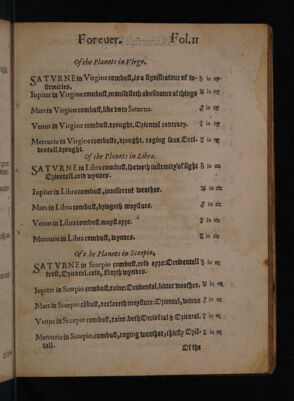 Foreuer. Fol.11
Of the Planets in Virgo.
SATVRNE in Virgine combust, is a significatour of in- ♄ in ♍
firmities.
Iupiter in Virgine combust, manifesteth abundance of things ♃ in ♍
Mars in Virgine combust, like vnto Saturne. ♂ in ♍
Venus in Virgine combust, drought, Oriental contrary. ♀ in ♍
Mercurie in Virgine combuste, drought, raging seas, Occi- ☿ in ♍
dentall, drought.
Of the Planets in Libra.
SATVRNE in Libra combust, sheweth infirmity of sight ♄ in ♎
Orientall, cold wyndes.
Iupiter in Libra combust, indifferent weather. ♃ in ♎
Mars in Libra combust, bringeth moysture. ♂ in ♎
Venus in Libra combust, moyst ayre. ♀ in ♎
Mercurie in Libra combust, wyndes. ☿ in ♎
Of the Planets in Scorpio.
SATVRNE in Scorpio combust, cold ayre: Occidentall ♄ in ♏
frost, Oriental, cold, North wyndes.
Iupiter in Scorpio combust, raine: Occidental, bitter weather. ♃ in ♏
Mars in Scorpio cõbust, declareth moysture: Oriental, winds ♂ in ♏
Venus in Scorpio combust, raine: both Occidẽtal & Oriental. ♀ in ♏
Mercurie in Scorpio, combust, raging weather, chiefly Ori- ☿ in ♏
tall.
Of the